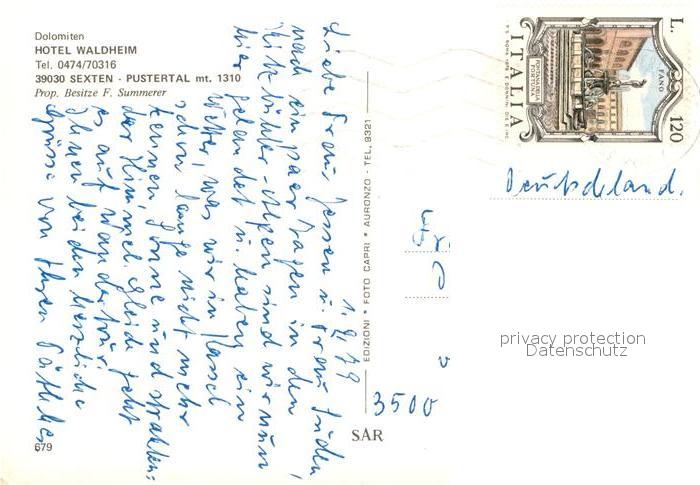 Dolomiten
HOTEL WALDHEIM
Tel. 0474/70316
39030 SEXTEN - PUSTERTAL mt. 1310
Prop. Besitze F. Summerer
1. 9. 79
Liebe Frau Jessen u. Frau Lüden,
nach ein paar Tagen in den
Kitzbühler-Alpen sind wir nun
hier gelandet u. haben ein
Wetter, was wir in Kassel
schon lange nicht mehr
kennen, Sonne und strahlen-
der Himmel. Gleich geht
es auf Wandertour.
Ihnen beiden herzliche
Grüsse von Ihren
679
EDIZIONI * FOTO CAPRI * AURONZO - TEL. 9321
SAR
L. 120
ITALIA
FANO
FONTANA DELLA FORTUNA
Deutschland.
Fr
3500
privacy protection
Datenschutz